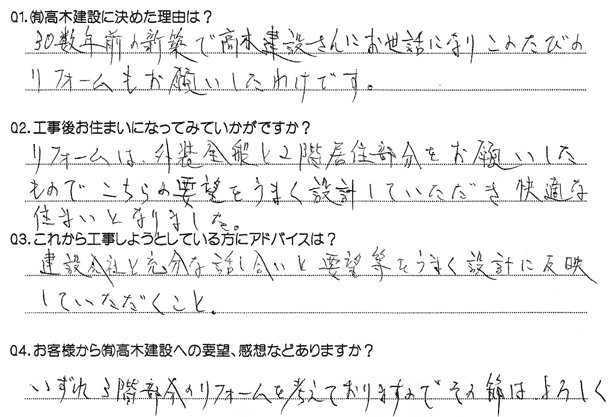 Q1.㈲高木建設に決めた理由は？
30数年前の新築で高木建設さんにお世話になりこのたびの
リフォームもお願いしたわけです。
Q2.工事後お住まいになってみていかがですか？
リフォームは、外装全般と2階居住部分をお願いした
もので こちらの要望をうまく設計していただき 快適な
住まいとなりました。
Q3.これから工事しようとしている方にアドバイスは？
建設会社と充分な話し合いと要望等をうまく設計に反映
していただくこと。
Q4.お客様から㈲高木建設への要望、感想などありますか？
いずれ 3階部分のリフォームを考えておりますので その節は よろしく